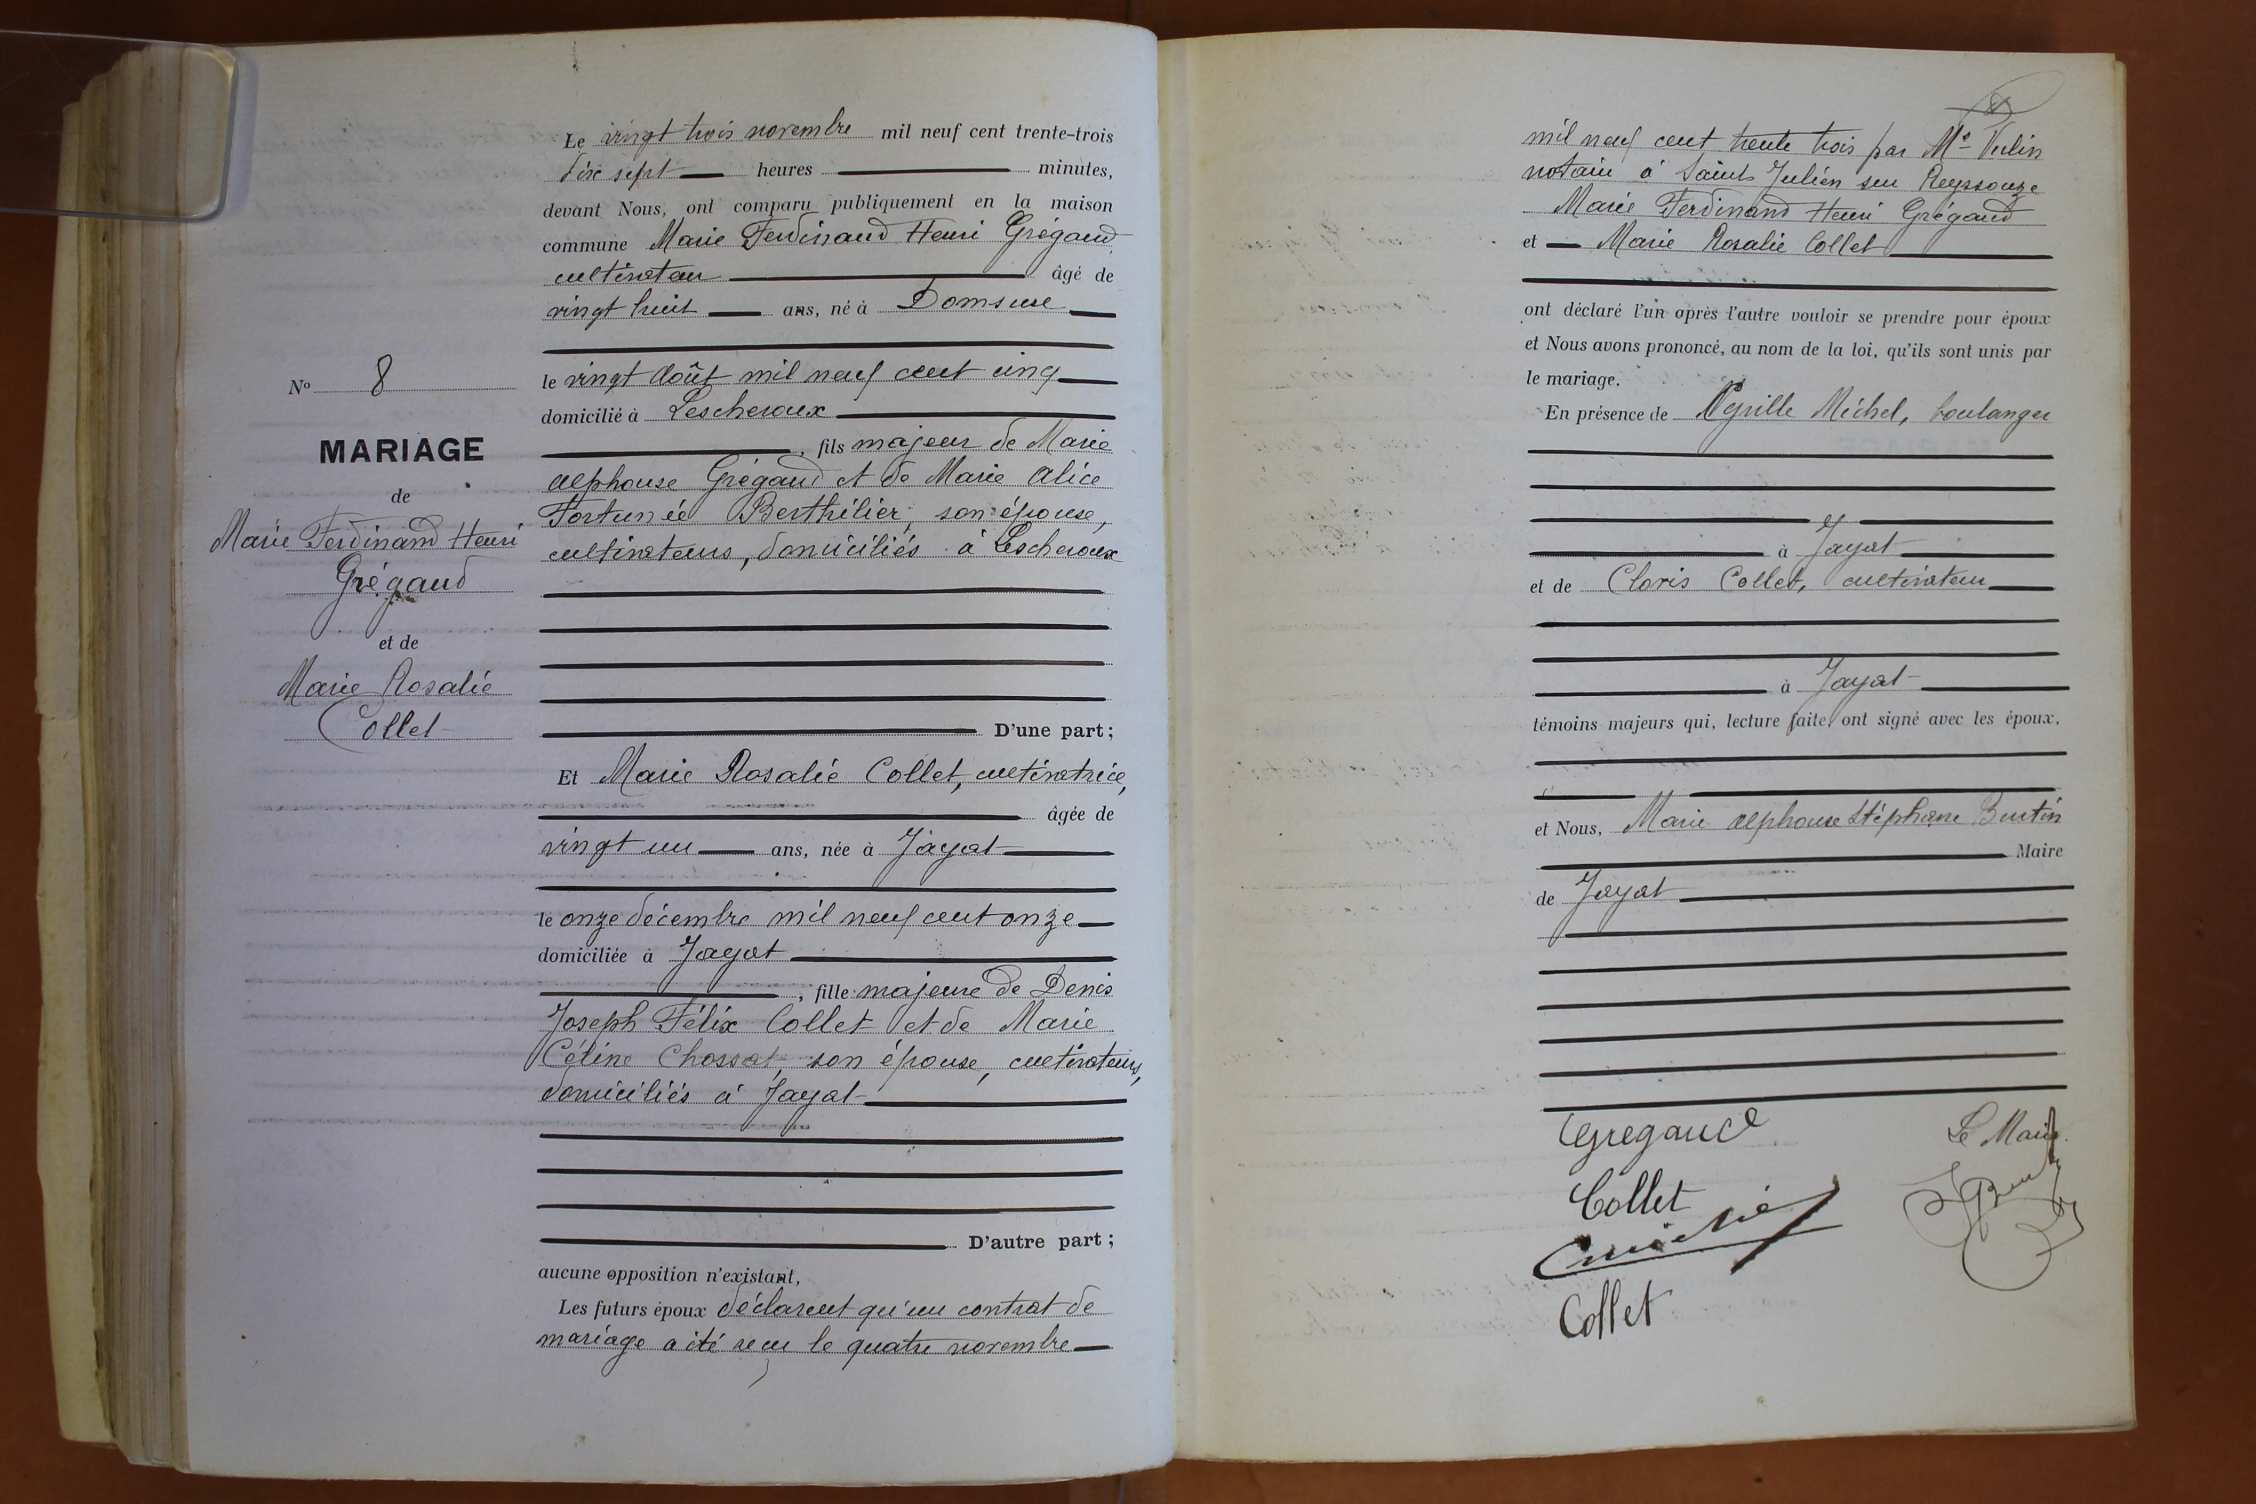 N° 8
MARIAGE
de
Marie Ferdinand Henri
Grégaud
et de
Marie Rosalie
Collet
Le vingt trois novembre mil neuf cent trente-trois
dix sept heures minutes,
devant Nous, ont comparu publiquement en la maison
commune Marie Ferdinand Henri Grégaud
cultivateur âgé de
vingt huit ans, né à Domsure
le vingt Août mil neuf cent cinq
domicilié à Lescheroux
, fils majeur de Marie
Alphonse Grégaud et de Marie Alice
Fortunée Berthilier, son épouse,
cultivateurs, domiciliés à Lescheroux
D'une part ;
Et Marie Rosalie Collet, cultivatrice,
âgée de
vingt un ans, née à Jayat
le onze décembre mil neuf cent onze
domiciliée à Jayat
, fille majeure de Denis
Joseph Félix Collet et de Marie
Céline Chossat, son épouse, cultivateurs,
domiciliés à Jayat
D'autre part ;
aucune opposition n'existant,
Les futurs époux déclarent qu'un contrat de
mariage a été reçu le quatre novembre
mil neuf cent trente trois par Me Vulin
notaire à Saint Julien sur Reyssouze
Marie Ferdinand Henri Grégaud
et Marie Rosalie Collet
ont déclaré l'un après l'autre vouloir se prendre pour époux
et Nous avons prononcé, au nom de la loi, qu'ils sont unis par
le mariage.
En présence de Cyrille Michel, boulanger
à Jayat
et de Cloris Collet, cultivateur
à Jayat
témoins majeurs qui, lecture faite, ont signé avec les époux.
et Nous, Marie Alphonse Stéphane Burtin
Maire
de Jayat
Gregaud
Le Maire
Collet
Collet